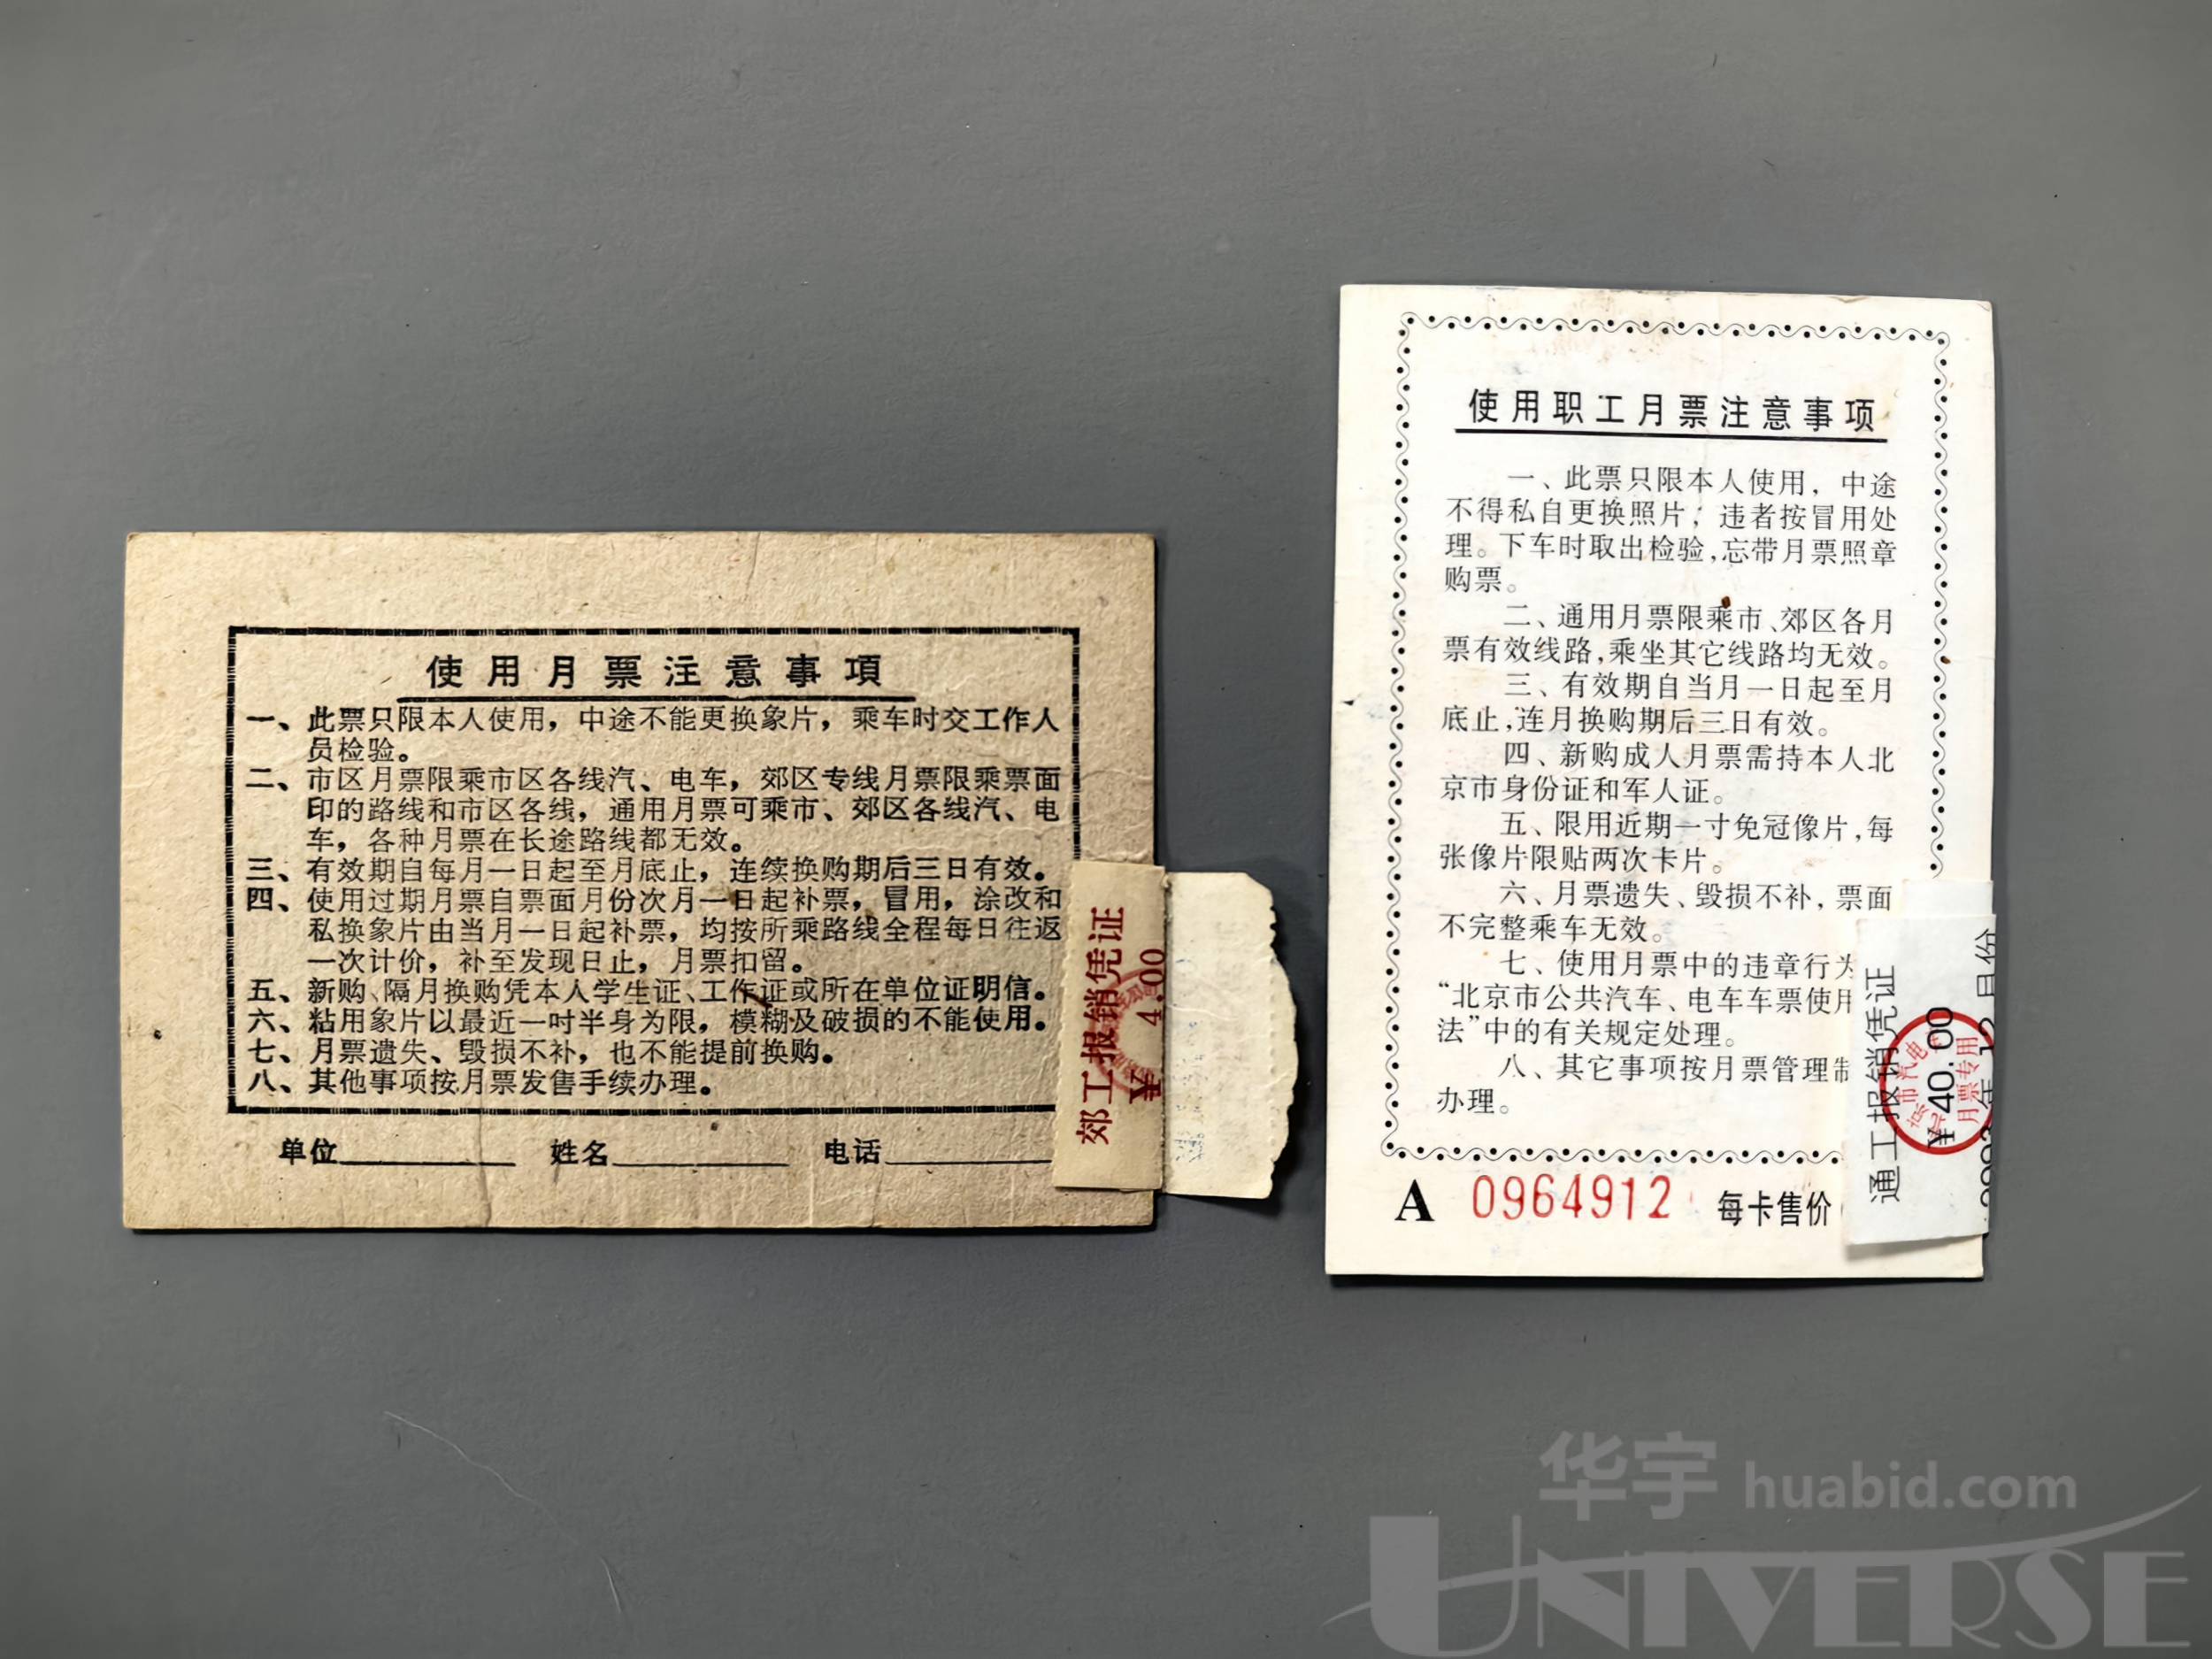 使用月票注意事項
一、此票只限本人使用，中途不能更换象片，乘车时交工作人
员检验。
二、市区月票限乘市区各线汽、电车，郊区专线月票限乘票面
印的路线和市区各线，通用月票可乘市、郊区各线汽、电
车，各种月票在长途路线都无效。
三、有效期自每月一日起至月底止，连续换购期后三日有效。
四、使用过期月票自票面月份次月一日起补票，冒用，涂改和
私换象片由当月一日起补票，均按所乘路线全程每日往返
一次计价，补至发现日止，月票扣留。
五、新购、隔月换购凭本人学生证、工作证或所在单位证明信。
六、粘用象片以最近一吋半身为限，模糊及破损的不能使用。
七、月票遗失、毁损不补，也不能提前换购。
八、其他事项按月票发售手续办理。
单位 姓名 电话
郊工报销凭证
¥ 4.00
使用职工月票注意事项
一、此票只限本人使用，中途
不得私自更换照片；违者按冒用处
理。下车时取出检验，忘带月票照章
购票。
二、通用月票限乘市、郊区各月
票有效线路，乘坐其它线路均无效。
三、有效期自当月一日起至月
底止，连月换购期后三日有效。
四、新购成人月票需持本人北
京市身份证和军人证。
五、限用近期一寸免冠像片，每
张像片限贴两次卡片。
六、月票遗失、毁损不补，票面
不完整乘车无效。
七、使用月票中的违章行为
“北京市公共汽车、电车车票使用
法”中的有关规定处理。
八、其它事项按月票管理制
办理。
A 0964912 每卡售价
通工报销凭证
¥40.00
月票专用
12月份
华宇 huabid.com
UNIVERSE